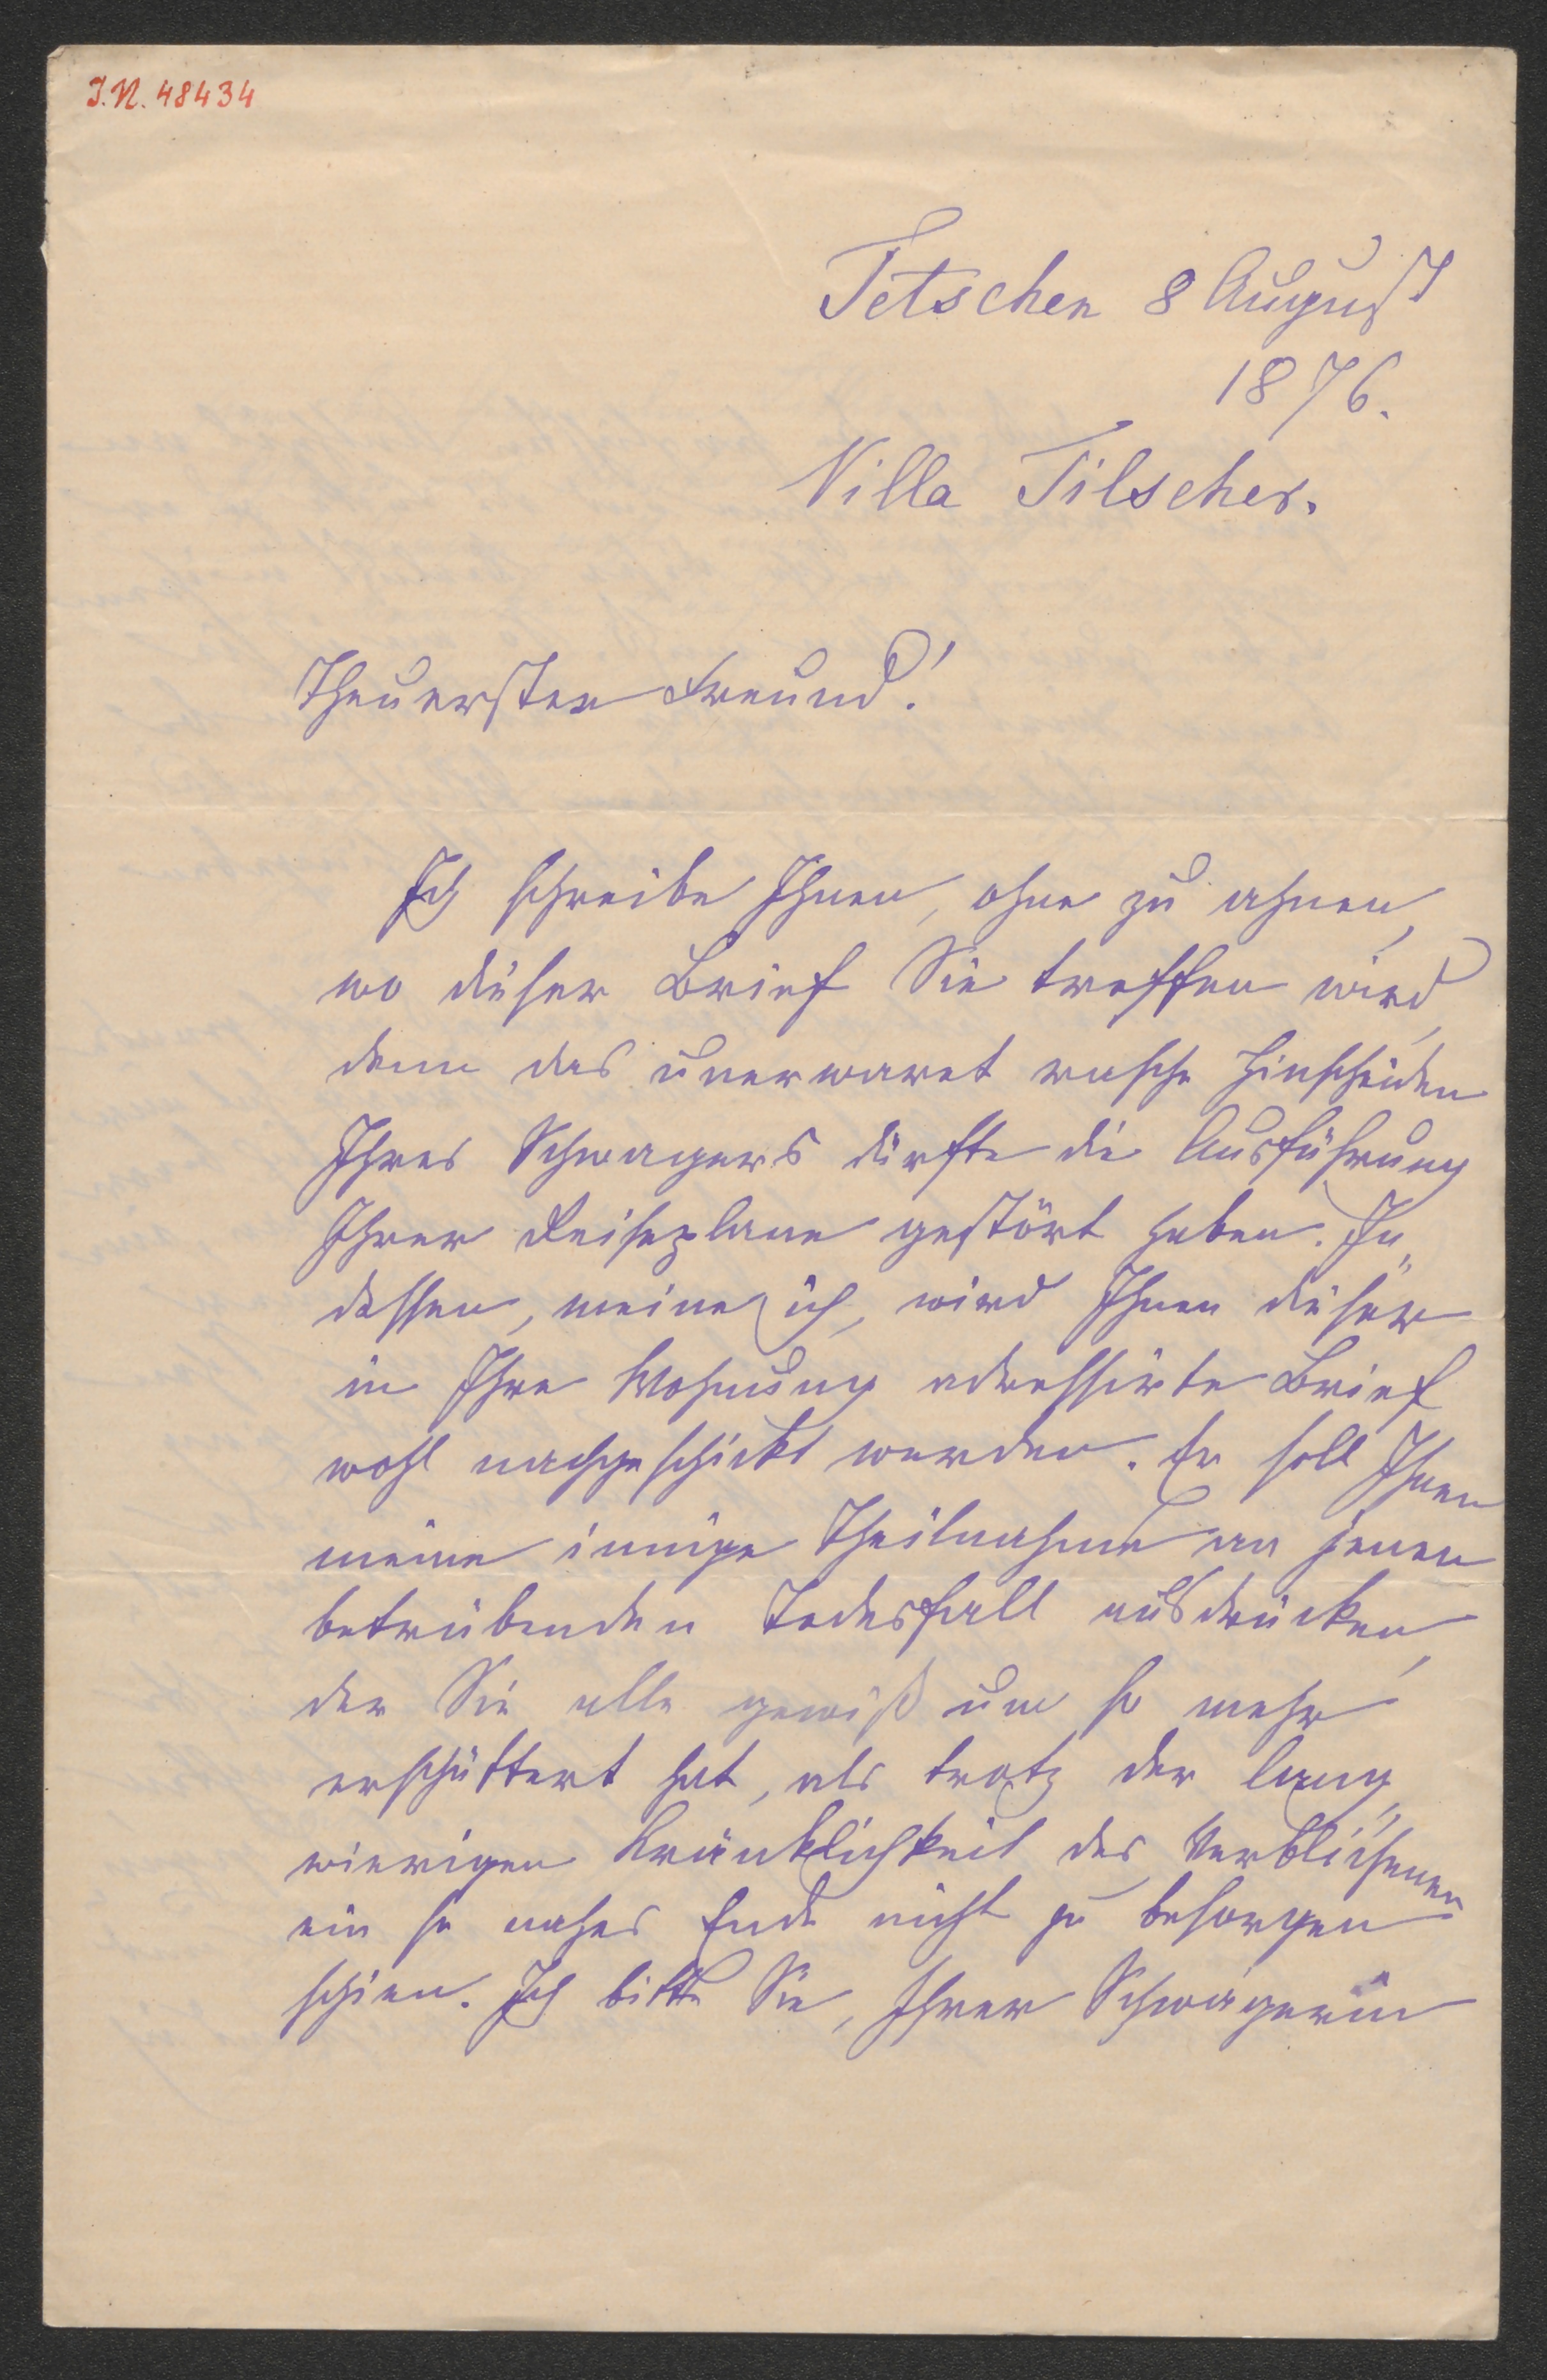 I.N. 48434
Tetschen 8 August
1876.
Villa Tilscher.
Theuerster Freund!
Ich schreibe Ihnen, ohne zu ahnen,
wo dieser Brief Sie treffen wird,
denn das unerwartet rasche Hinscheiden
Ihres Schwagers dürfte die Ausführung
Ihrer Reiseplane gestört haben. In„
dessen, meine ich, wird Ihnen dieser
in Ihre Wohnung adressirte Brief
wohl nachgeschickt werden. Er soll Ihnen
meine innige Theilnahme an jenem
betrübenden Todesfall ausdrücken,
der Sie alle gewiß um so mehr
erschüttert hat, als trotz der lang„
wierigen Kränklichkeit des Verblichenen
ein so nahes Ende nicht zu besorgen
schien. Ich bitte Sie, Ihrer Schwägerin